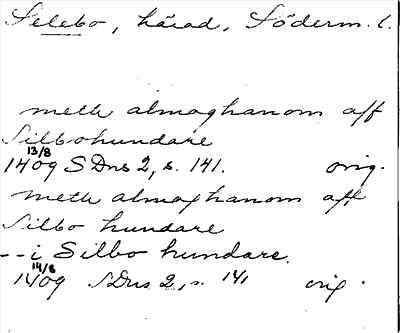 Selebo, härad, Söderm. l.
meth almoghanom aff
Silbohundare
13/8
1409 SDns 2, s. 141. orig.
meth almoghanom aff
Silbo hundare
-- i Silbo hundare.
14/8
1409 SDns 2, s. 141 orig.